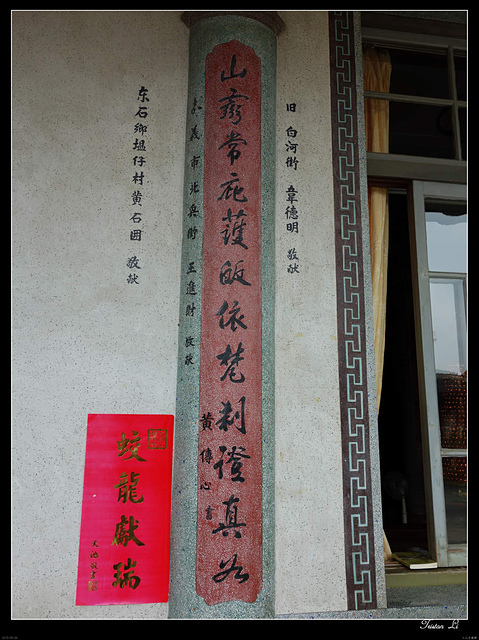 旧 白河街 韋德明 敬献
山靈常庇護皈依梵刹證真如
黄傳心書
嘉義市北兵街 王進財 敬献
东石鄉塭仔村黄石囲 敬献
蛟龍獻瑞
Tristan Li